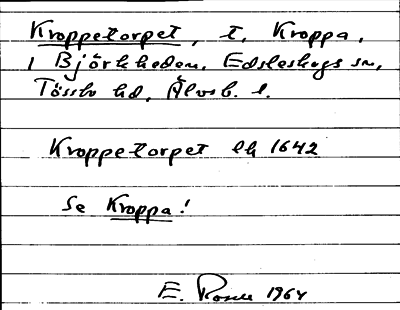 Kroppetorpet, t. Kroppa,
i Björkheden, Edsleskogs sn,
Tössbo hd, Älvsb. l.
Kroppetorpet lh 1642
Se Kroppa!
E. Rosell 1964